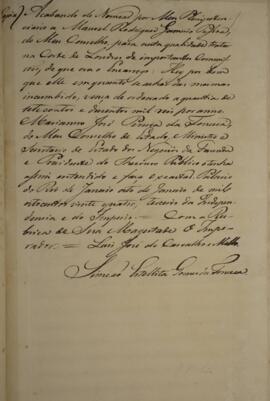 Acabando de Nomear por Meu Plenipoten-
ciario a Manoel Rodrigues Gameiro Pessoa,
do Meu Conselho, para nesta qualidade tratar
na Corte de Londres de importantes Commis-
sões, de que vai encarregado: Hey por bem
que elle em quanto se achar das mesmas
incumbido, vença de ordenado a quantia de
sete contos e duzentos mil reis por anno.
Marianno José Pereira da Fonseca,
do Meu Conselho de Estado, Ministro e
Secretario de Estado dos Negocios da Fazenda
e Presidente do Thesouro Publico o tenha
assim entendido e faça executar. Palacio
do Rio de Janeiro oito de Janeiro de mil
oitocentos vinte quatro, terceiro da Indepen-
dencia e do Imperio. = Com a Ru-
brica de Sua Magestade O Impe-
rador. = Luis José de Carvalho e Mello
Simeão Estellita Gomes da Fonseca